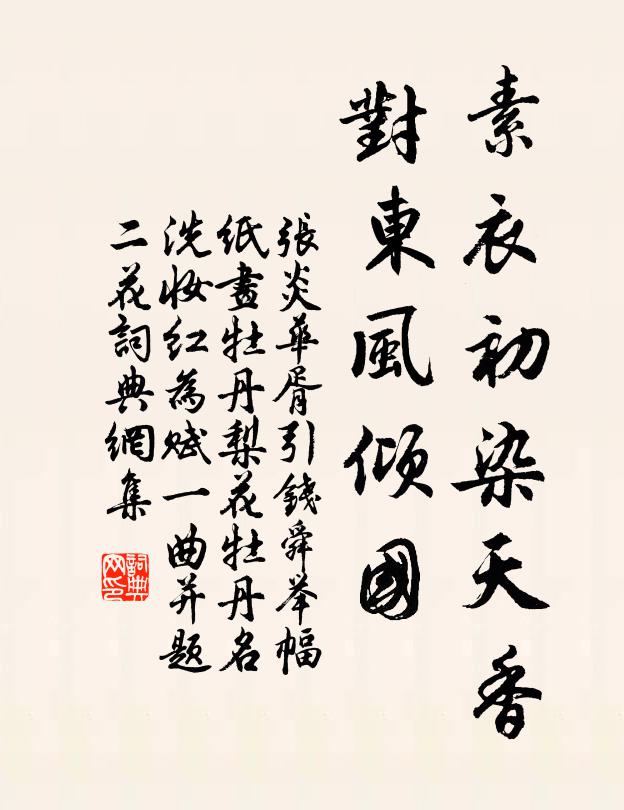 素衣初染天香
對東風傾國
張炎華胥引錢舜举幅
紙畫牡丹梨花牡丹名
洗妆红為赋一曲并题
二花詞典網集
詞典网印